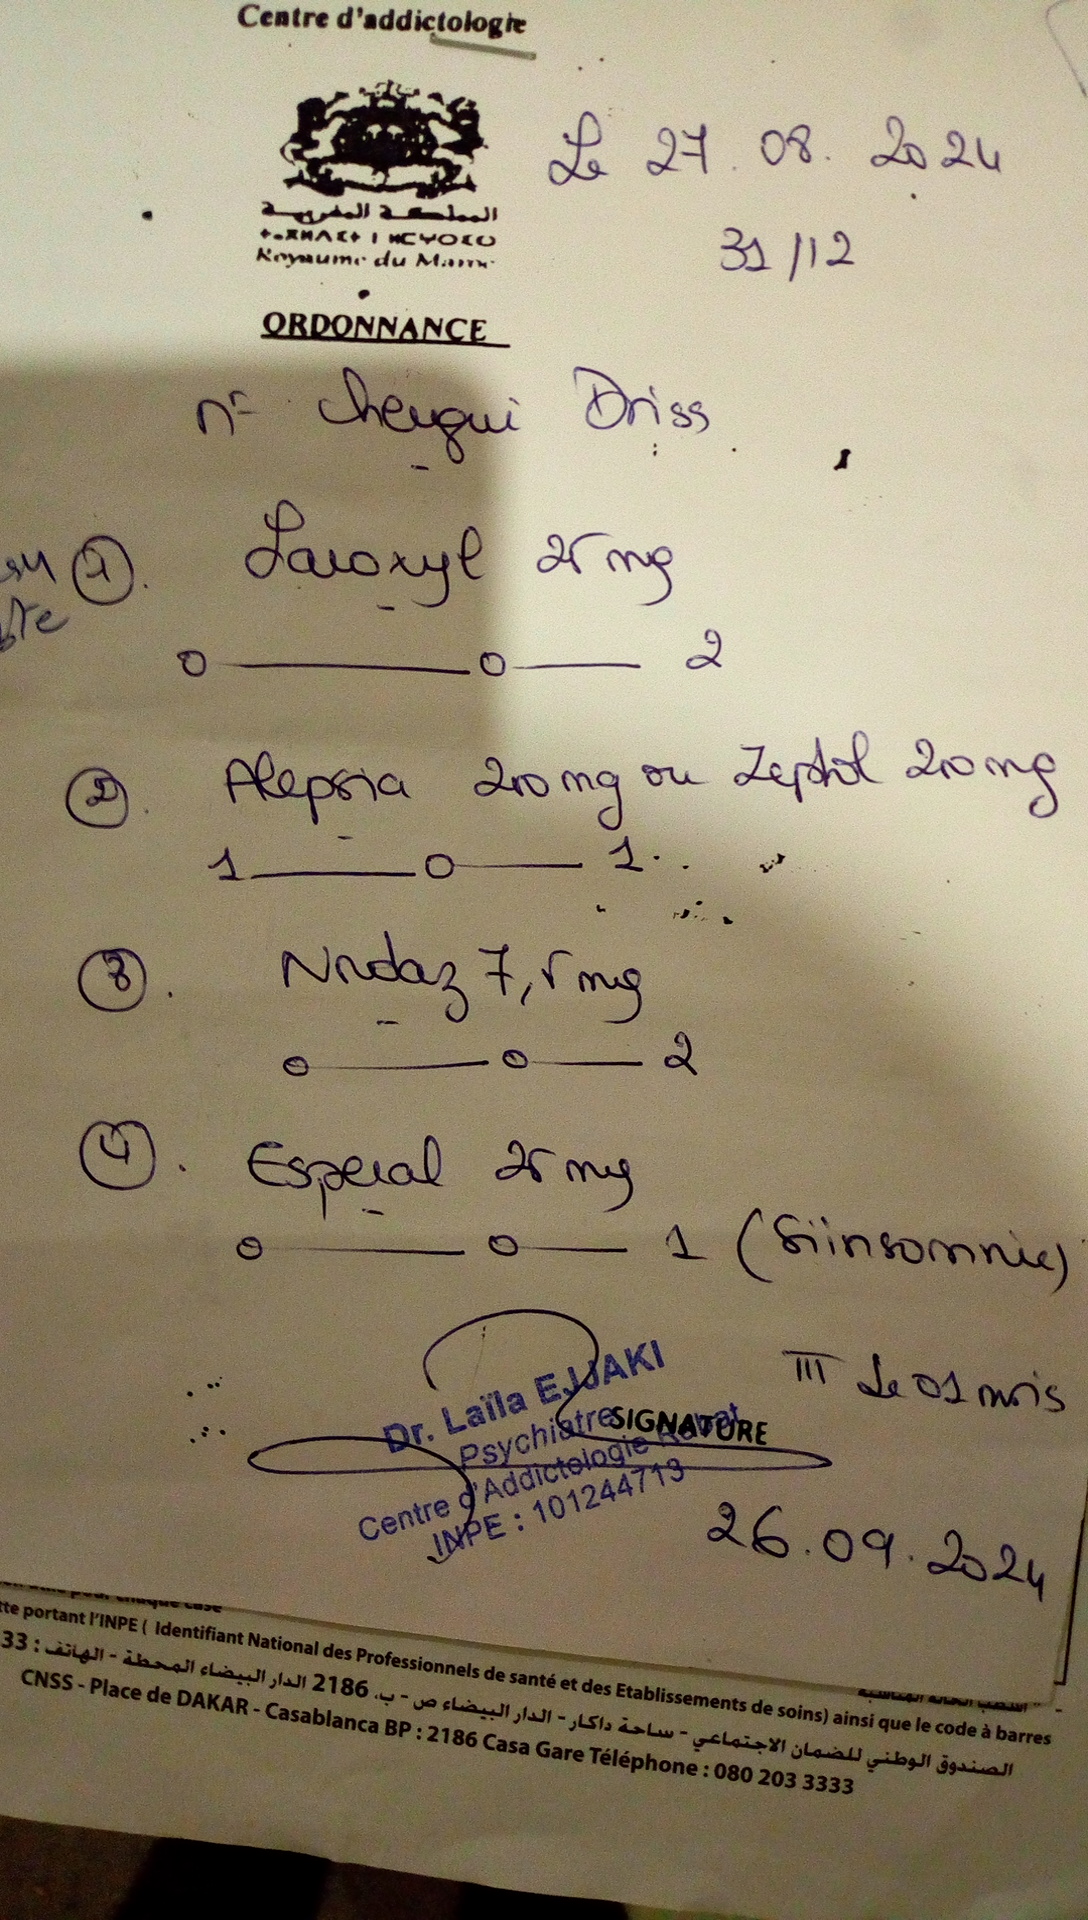 Centre d'addictologie
Le 27.08.2024
المملكة المغربية
ⵜⴰⴳⵍⴷⵉⵜ ⵏ ⵍⵎⵖⵔⵉⴱ
Royaume du Maroc
31/12
ORDONNANCE
Driss
1. Laroxyl 25 mg
0 — 0 — 2
2. Alepsia 200 mg ou Zeptol 200 mg
1 — 0 — 1
3. Nordaz 7,5 mg
0 — 0 — 2
4. Esperal 25 mg
0 — 0 — 1 (Si insomnie)
III
Dr. Laïla EJJAKI
Psychiatre
SIGNATURE
Centre d'Addictologie Rabat
INPE : 101244713
26.09.2024
portant l'INPE ( Identifiant National des Professionnels de santé et des Etablissements de soins) ainsi que le code à barres
الصندوق الوطني للضمان الاجتماعي - ساحة داكار - الدار البيضاء ص - ب. 2186 الدار البيضاء المحطة - الهاتف : 33
CNSS - Place de DAKAR - Casablanca BP : 2186 Casa Gare Téléphone : 080 203 3333